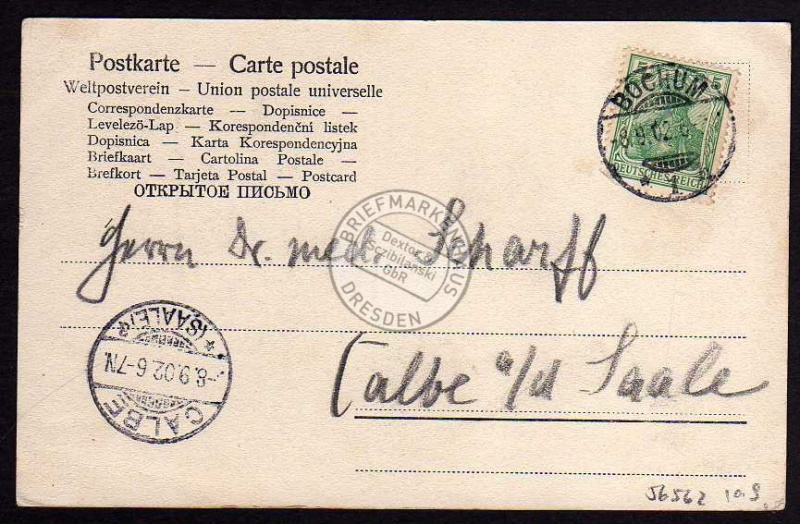 Postkarte — Carte postale
Weltpostverein — Union postale universelle
Correspondenzkarte — Dopisnice —
Levelező-Lap — Korespondenční listek
Dopisnica — Karta Korespondencyjna
Briefkaart — Cartolina Postale —
Brefkort — Tarjeta Postal — Postcard
ОТКРЫТОЕ ПИСЬМО
5
DEUTSCHES REICH
BOCHUM
8.9.02
* 1
BRIEFMARKENHAUS
Dextor
Sczibilanski
GbR
DRESDEN
Herrn Dr. med. Scharff
Calbe a/d Saale
* (SAALE) a
-8.9.02.6-7N.
CALBE
56562